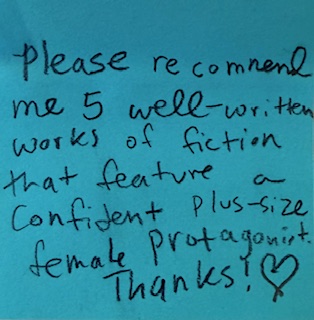 Please recommend
me 5 well-written
works of fiction
that feature a
confident plus-size
female protagonist.
Thanks!